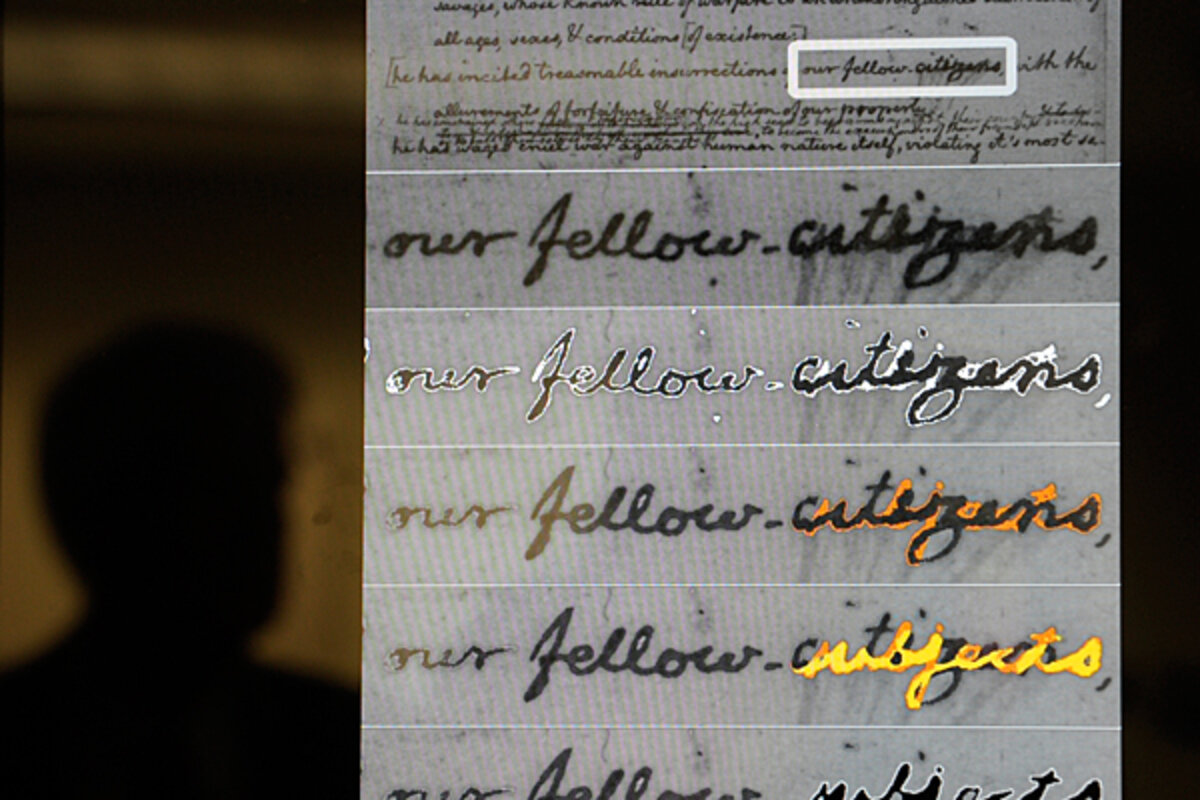 savages, whose known rule of warfare is an undistinguished destruction of
all ages, sexes, & conditions [of existence.]
[he has incited treasonable insurrections our fellow-citizens, with the
allurements of forfeiture & confiscation of our property.
he has waged cruel war against human nature itself, violating it's most sa-
our fellow-citizens,
our fellow-citizens,
our fellow-citizens,
our fellow-subjects,
our fellow subjects